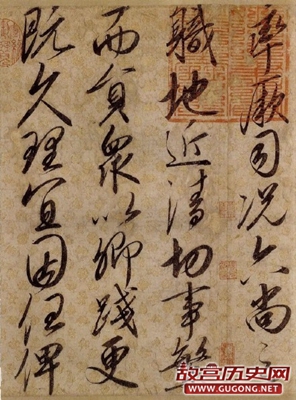 率厥司况六尚之
職地近清切事繁
而員衆以卿踐更
既久理宜因任俾
故宫历史网
www.GuGong.net